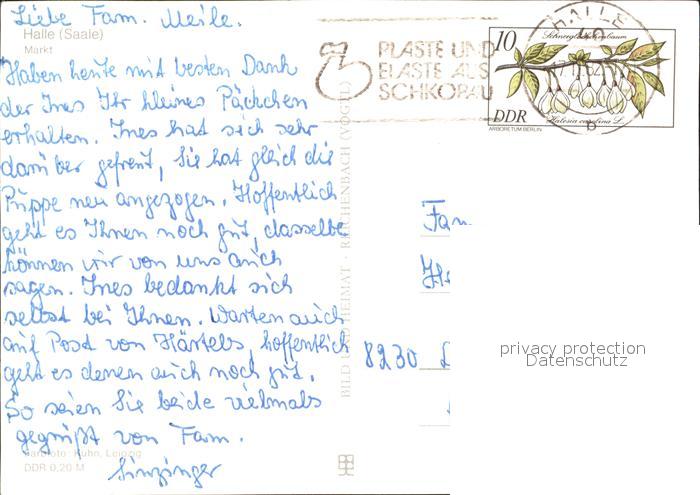 Liebe Fam. Meile.
Halle (Saale)
Markt
Haben heute mit besten Dank
der Ines Ihr kleines Päckchen
erhalten. Ines hat sich sehr
darüber gefreut, sie hat gleich die
Puppe neu angezogen. Hoffentlich
geht es Ihnen noch gut, dasselbe
können wir von uns auch
sagen. Ines bedankt sich
selbst bei Ihnen. Warten auch
auf Post von Härtels, hoffentlich
geht es denen auch noch gut.
So seien Sie beide vielmals
gegrüßt von Fam.
Sinzinger
Farbfoto: Kuhn, Leipzig
DDR 0,20 M
BILD UND HEIMAT · REICHENBACH (VOGTL)
PLASTE UND
ELASTE AUS
SCHKOPAU
HALLE
b
10
Schneeglöckchenbaum
Halesia carolina L.
DDR
ARBORETUM BERLIN
Fam
8230
privacy protection
Datenschutz